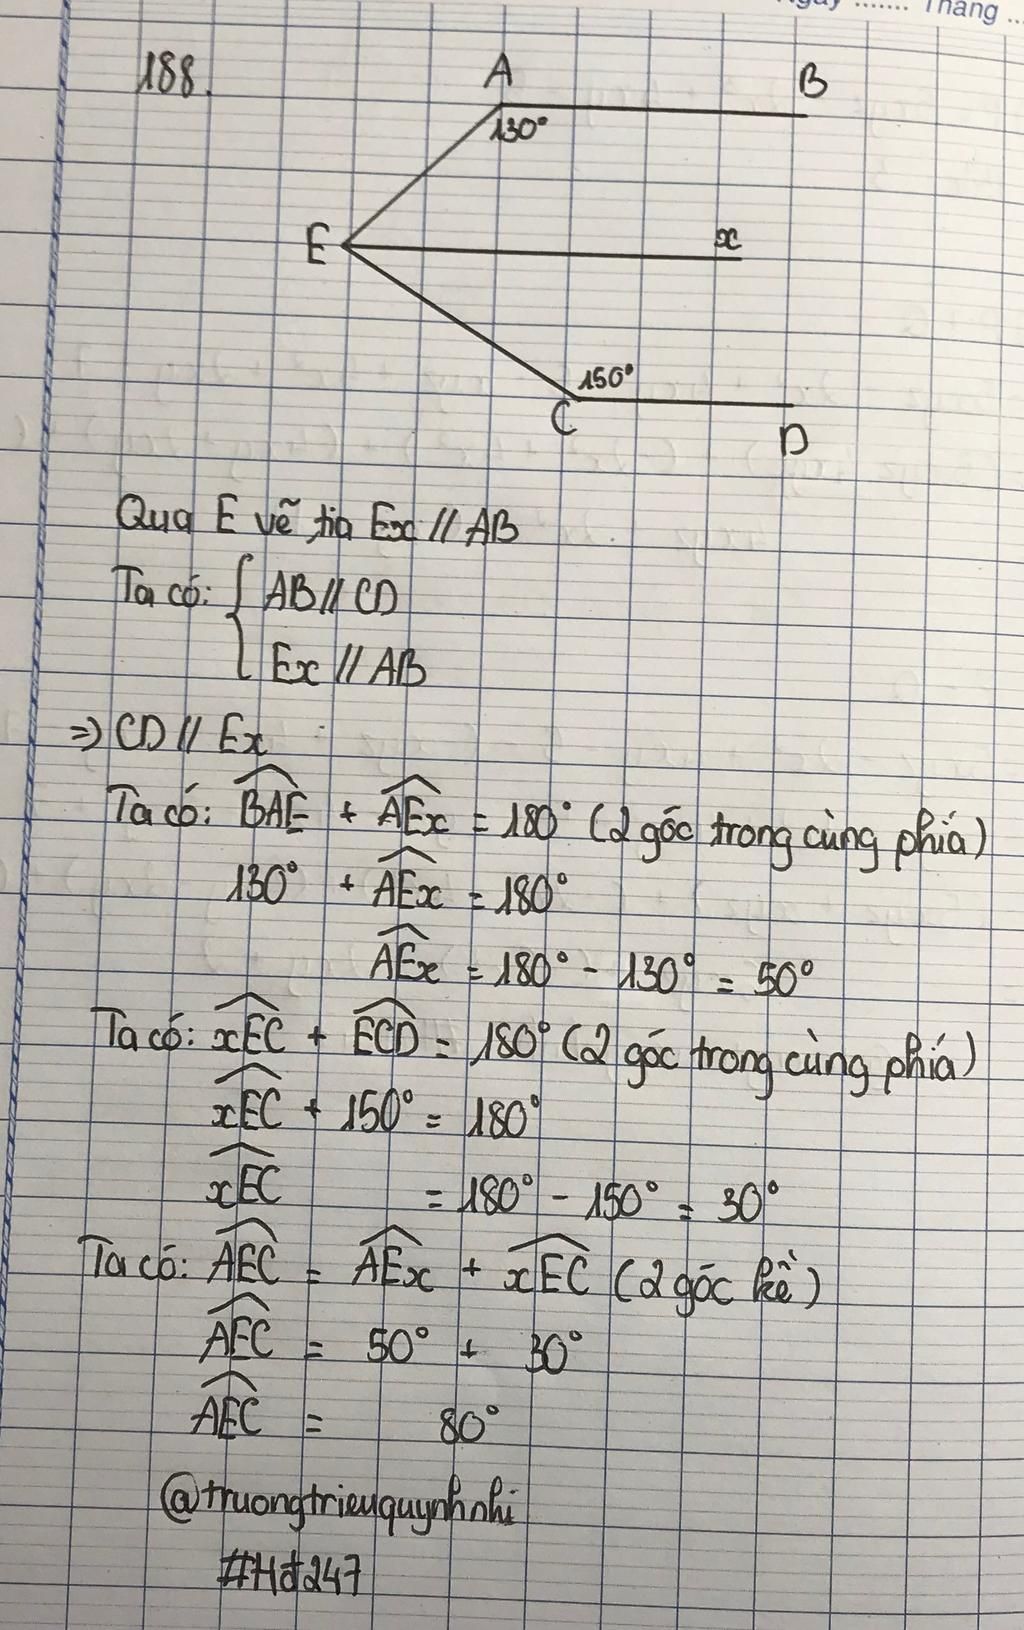 Ngày ....... Tháng ...
188.
A
B
130°
E
x
150°
C
D
Qua E vẽ tia Ex // AB
Ta có: { AB // CD
Ex // AB
=> CD // Ex
Ta có: BAE + AEx = 180° (2 góc trong cùng phía)
130° + AEx = 180°
AEx = 180° - 130° = 50°
Ta có: xEC + ECD = 180° (2 góc trong cùng phía)
xEC + 150° = 180°
xEC = 180° - 150° = 30°
Ta có: AEC = AEx + xEC (2 góc kề)
AEC = 50° + 30°
AEC = 80°
@truongtrieuquynhnhi
#Hđ247